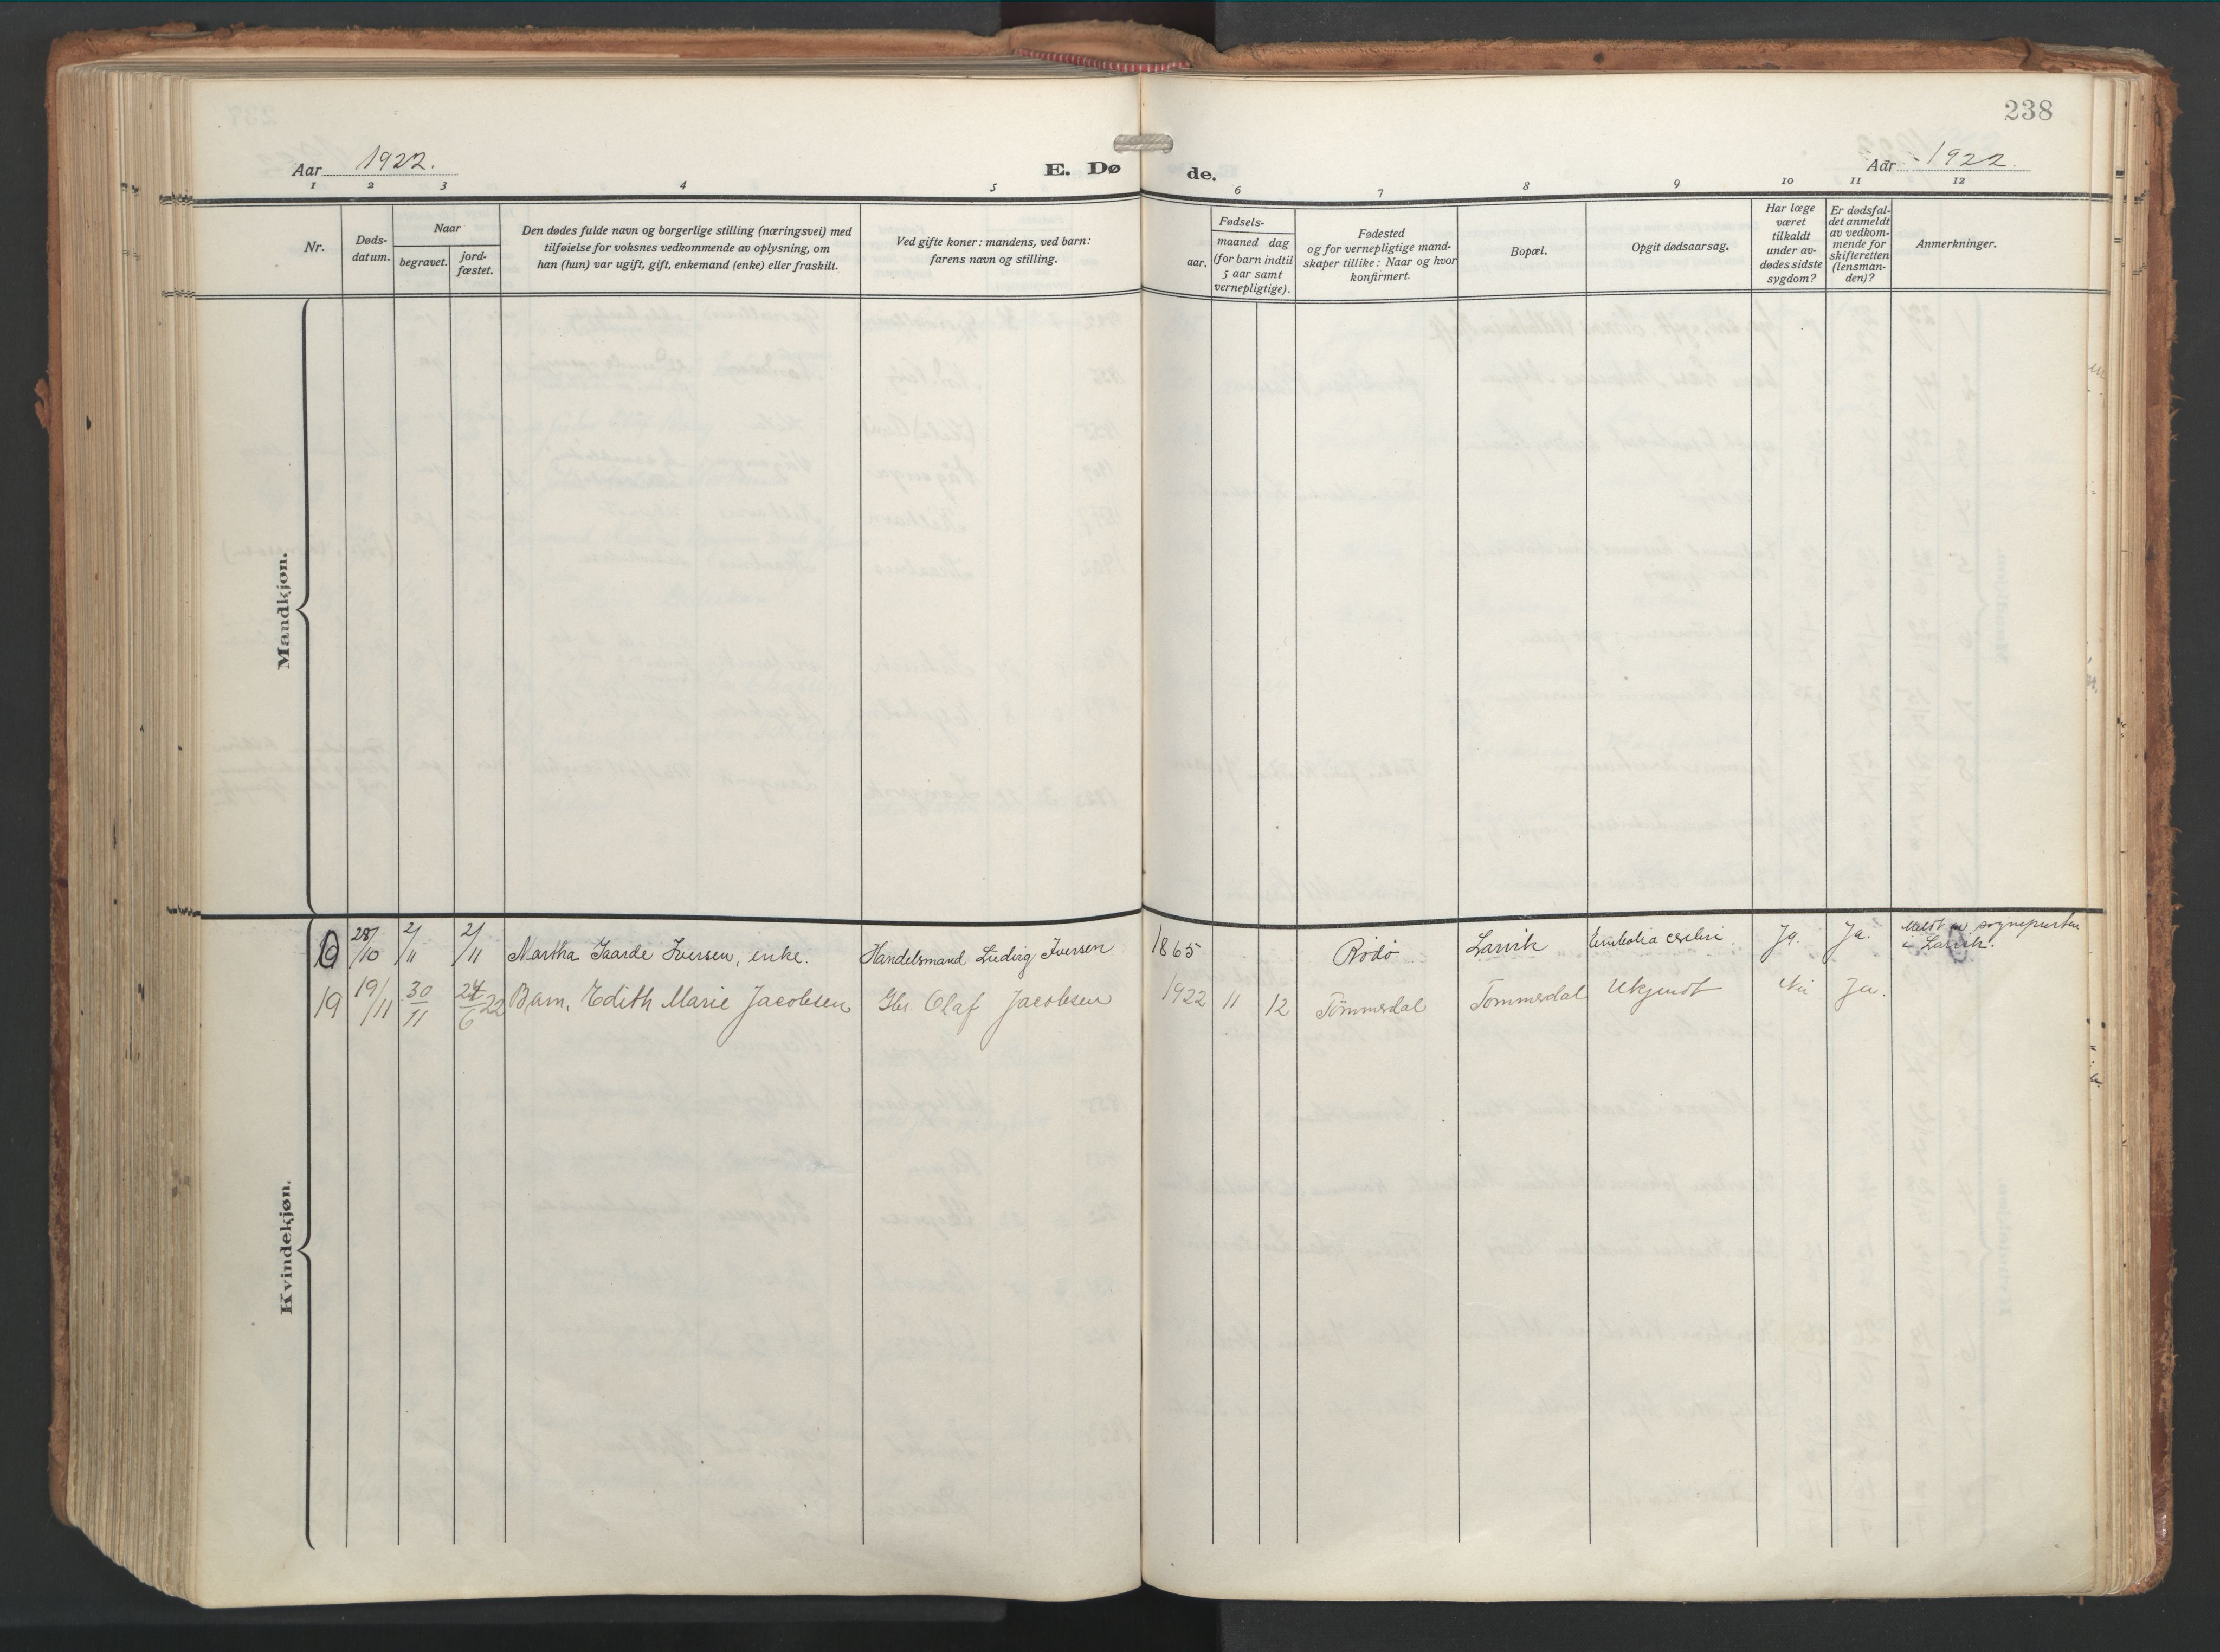 238
Aar 1922.
E. Dø
de.
Aar 1922.
1 2 3 4 5 6 7 8 9 10 11 12
Nr.
Døds-
datum.
Naar
begravet.
jord-
fæstet.
Den dødes fulde navn og borgerlige stilling (næringsvei) med
tilføielse for voksnes vedkommende av oplysning, om
han (hun) var ugift, gift, enkemand (enke) eller fraskilt.
Ved gifte koner: mandens, ved barn:
farens navn og stilling.
Fødsels-
aar.
maaned dag
(for barn indtil
5 aar samt
vernepligtige).
Fødested
og for vernepligtige mand-
skaper tillike: Naar og hvor
konfirmert.
Bopæl.
Opgit dødsaarsag.
Har læge
været
tilkaldt
under av-
dødes sidste
sygdom?
Er dødsfal-
det anmeldt
av vedkom-
mende for
skifteretten
(lensman-
den)?
Anmerkninger.
Mandkjøn.
Kvindekjøn.
28/10 2/11 2/11 Martha Gaarde Iversen, enke. Handelsmand Ludvig Iversen 1865 Rödö Larvik Embolia cerebri. Ja. Ja. Meldt av sognepresten
i Larvik.
19 19/11 30/11 24/6 22 Barn, Edith Marie Jacobsen Gbr. Olaf Jacobsen 1922 11 12 Tömmerdal Tommerdal Ukjendt Nei Ja.